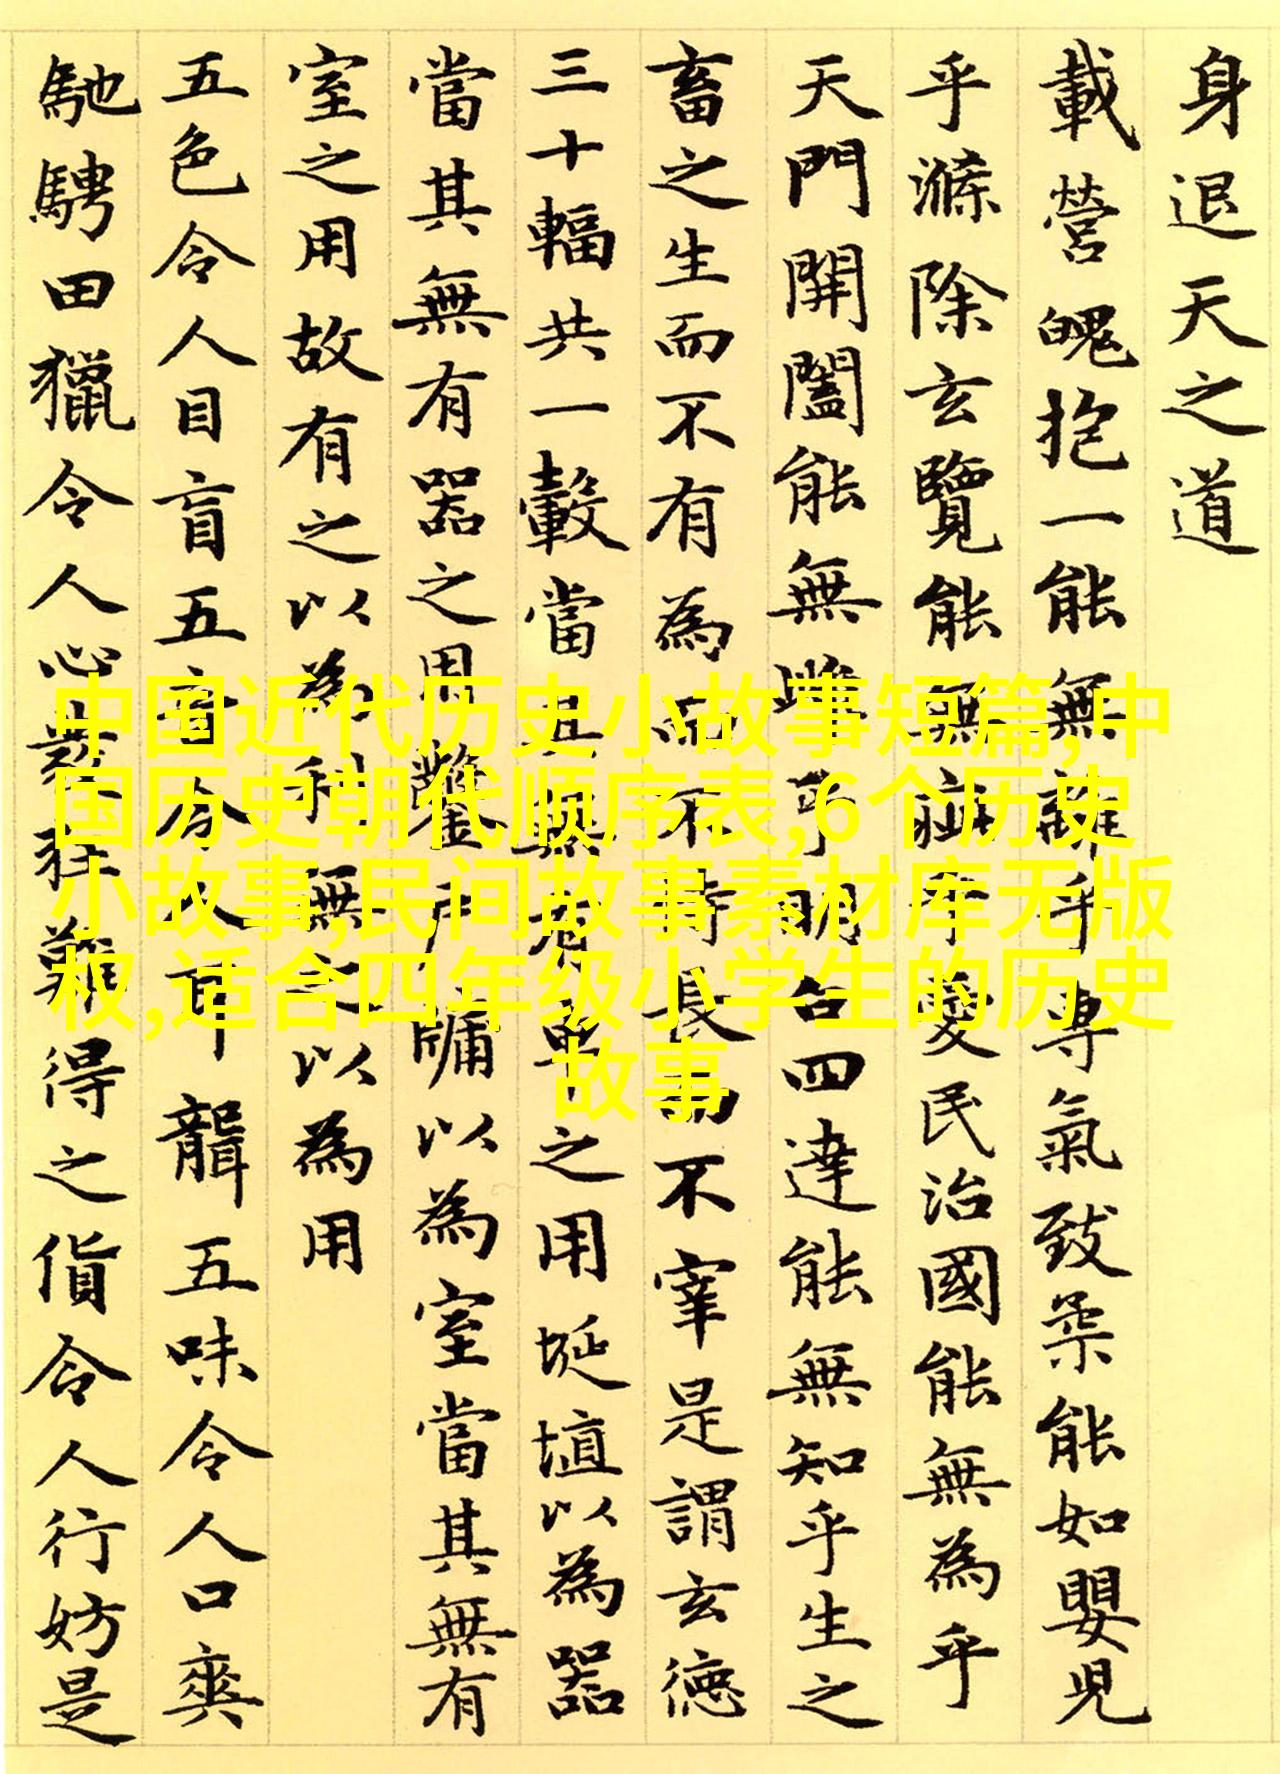 身退天之道
載營魄抱一能無離乎專氣致柔能如嬰兒
乎滌除玄覽能無疵乎愛民治國能無為乎
天門開闔能無雌乎明白四達能無知乎生之
畜之生而不有為而不恃長而不宰是謂玄德
三十輻共一轂當其無有車之用埏埴以為器
當其無有器之用鑿戶牖以為室當其無有
室之用故有之以為利無之以為用
五色令人目盲五音令人耳聾五味令人口爽
馳騁田獵令人心發狂難得之貨令人行妨是
中国近代历史小故事短篇,中
国历史朝代顺序表,6个历史
小故事,民间故事素材库无版
权,适合四年级小学生的历史
故事